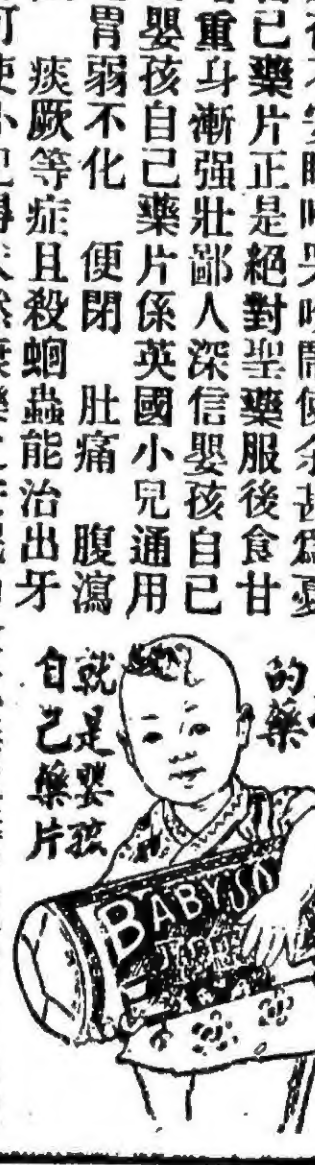 不安眠啼哭吵鬧使余甚爲憂
己藥片正是絕對聖藥服後食甘
重身漸强壯鄙人深信嬰孩自己
嬰孩自己藥片係英國小兒通用
胃弱不化 便閉 肚痛 腹瀉
痰厥等症且殺蛔蟲能治出牙
的藥
就是嬰孩
自己藥片
BABY'S